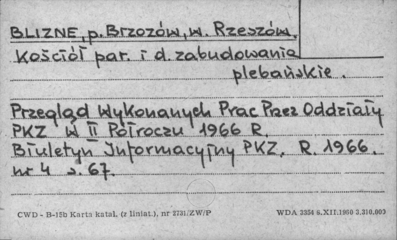 BLIZNE, p. Brzozów, w. Rzeszów,
Kościół par. i d. zabudowania
plebańskie.
Przegląd Wykonanych Prac Przez Oddziały
PKZ W II Półroczu 1966 R.
Biuletyn Informacyjny PKZ, R. 1966.
nr 4 s. 67.
CWD - B-15b Karta katal. (z liniat.), nr 2731/ZW/P WDA 3354 6.XII.1960 3.210.003